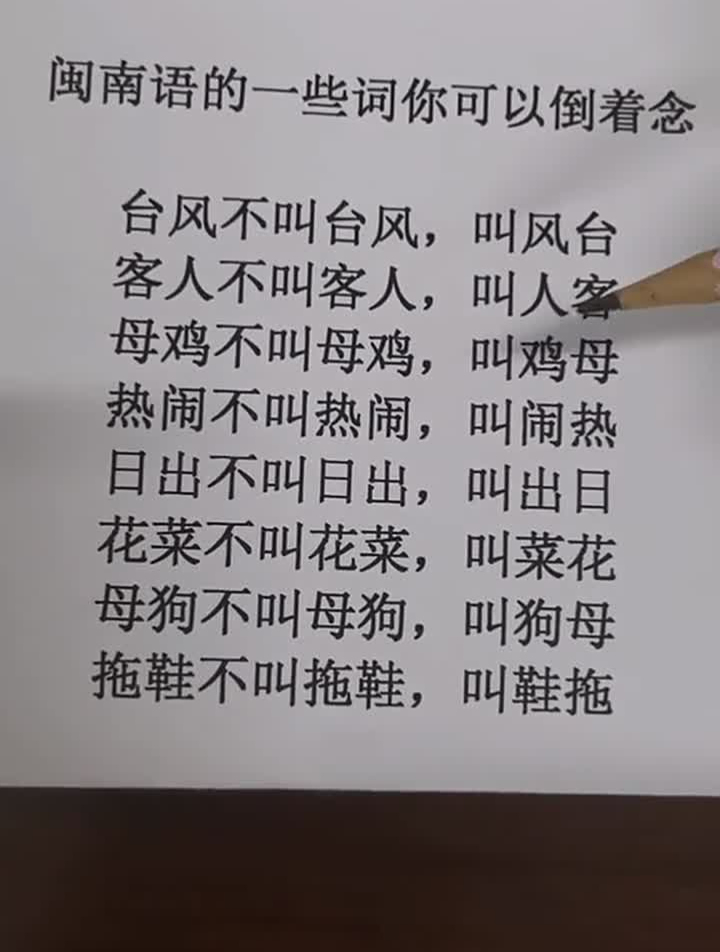 闽南语的一些词你可以倒着念
台风不叫台风，叫风台
客人不叫客人，叫人客
母鸡不叫母鸡，叫鸡母
热闹不叫热闹，叫闹热
日出不叫日出，叫出日
花菜不叫花菜，叫菜花
母狗不叫母狗，叫狗母
拖鞋不叫拖鞋，叫鞋拖